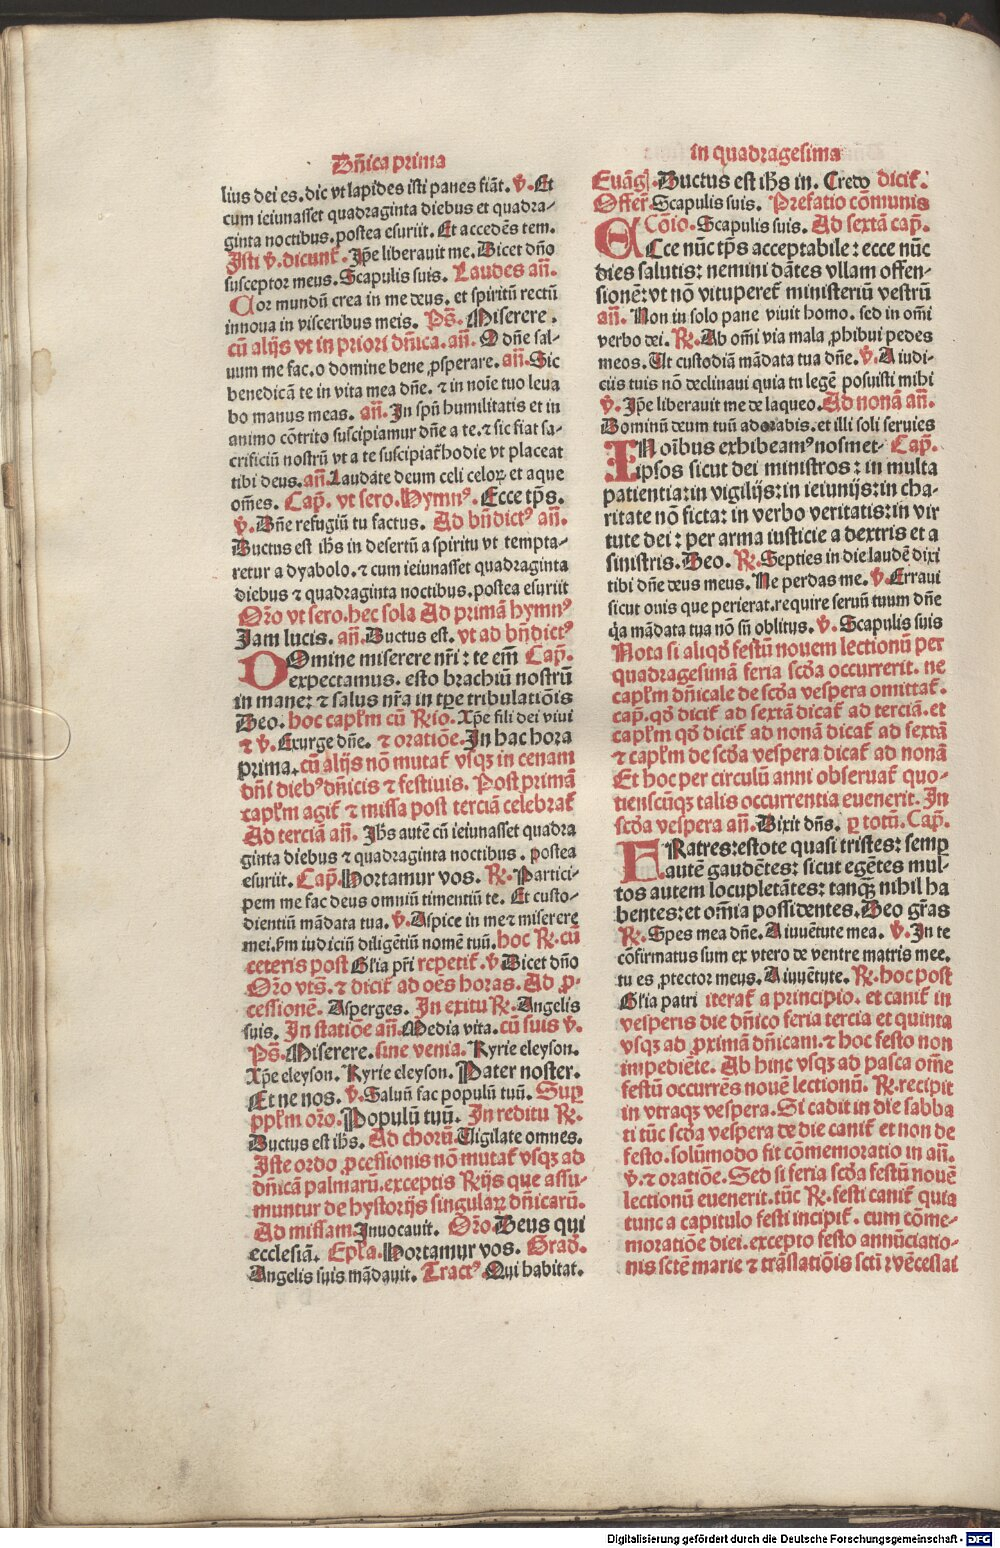 Dñica prima
lius dei es. dic vt lapides isti panes fiãt. ℣. Et
cum ieiunasset quadraginta diebus et quadra-
ginta noctibus. postea esuriit. Et accedẽs tem.
Isti ℣. dicunt̃. Ip̃e liberauit me. Dicet dño
susceptor meus. Scapulis suis. Laudes añ.
Cor mundũ crea in me deus. et spiritũ rectũ
innoua in visceribus meis. Ps̃. Miserere.
cũ alijs vt in priori dñica. añ. O dñe sal-
uum me fac. o domine bene ꝓsperare. añ. Sic
benedicã te in vita mea dñe. ⁊ in noĩe tuo leua
bo manus meas. añ. In spũ humilitatis et in
animo cõtrito suscipiamur dñe a te. ⁊ sic fiat sa-
crificiũ nostrũ vt a te suscipiat̃ hodie vt placeat
tibi deus. añ. Laudate deum celi celoꝝ et aque
om̃es. Cap̃. vt sero. Hymnꝰ. Ecce tp̃s.
℣. Dñe refugiũ tu factus. Ad bñdictꝰ añ.
Ductus est ih̃s in desertũ a spiritu vt tempta-
retur a dyabolo. ⁊ cum ieiunasset quadraginta
diebus ⁊ quadraginta noctibus. postea esuriit
Or̃o vt sero. hec sola Ad primã hymnꝰ
Iam lucis. añ. Ductus est. vt ad bñdictꝰ
DOmine miserere nr̃i: te em̃ Cap̃.
expectamus. esto brachiũ nostrũ
in mane: ⁊ salus nr̃a in tp̃e tribulatiõis
Deo. hoc capl̃m cũ ℟io. Xp̃e fili dei viui
⁊ ℣. Exurge dñe. ⁊ oratiõe. In hac hora
prima. cũ alijs nõ mutat̃ vsqꝫ in cenam
dñi diebꝰ dñicis ⁊ festiuis. Post primã
capl̃m agit̃ ⁊ missa post terciã celebrat̃
Ad terciã añ. Ih̃s autẽ cũ ieiunasset quadra
ginta diebus ⁊ quadraginta noctibus. postea
esuriit. Cap̃. Hortamur vos. ℟. Partici-
pem me fac deus omniũ timentiũ te. Et custo-
dientiũ mãdata tua. ℣. Aspice in me ⁊ miserere
mei. s̃m iudiciũ diligẽtiũ nomẽ tuũ. hoc ℟. cũ
ceteris post Gl̃ia pr̃i rep̃etit̃. ℣ Dicet dño
Or̃o vts̃. ⁊ dicit̃ ad oẽs horas. Ad ꝓ-
cessionẽ. Asperges. In exitu ℟. Angelis
suis. In statiõe añ. Media vita. cũ suis ℣.
Ps̃. Miserere. sine venia. Kyrie eleyson.
Xp̃e eleyson. Kyrie eleyson. Pater noster.
Et ne nos. ℣. Saluũ fac populũ tuũ. Sup̲
ppl̃m or̃o. Populũ tuũ. In reditu ℟.
Ductus est ih̃s. Ad chorũ. Vigilate omnes.
Iste ordo ꝓcessionis nõ mutat̃ vsqꝫ ad
dñicã palmarũ. exceptis ℟ijs que assu-
muntur de hystorijs singulaꝝ dñicarũ.
Ad missam Inuocauit. Or̃o. Deus qui
ecclesiã. Ep̃la. Hortamur vos. Grad̃.
Angelis suis mãdauit. Tractꝰ. Qui habitat.
in quadragesima
Euãgl̃. Ductus est ih̃s in. Credo dicit̃.
Offer̃. Scapulis suis. Prefatio cõmunis
Cõio. Scapulis suis. Ad sextã cap̃.
ECce nũc tp̃s acceptabile: ecce nũc
dies salutis: nemini dãtes vllam offen-
sionẽ: vt nõ vituperet̃ ministeriũ vestrũ
añ. Non in solo pane viuit homo. sed in om̃i
verbo dei. ℟. Ab om̃i via mala ꝓhibui pedes
meos. Vt custodiã mãdata tua dñe. ℣. A iudi-
ciis tuis nõ declinaui quia tu legẽ posuisti mihi
℣. Ip̃e liberauit me de laqueo. Ad nonã añ.
Dominũ deum tuũ adorabis. et illi soli seruies
IN oĩbus exhibeamꝰ nosmet- Cap̃.
ipsos sicut dei ministros: in multa
patientia: in vigilijs: in ieiunijs: in cha-
ritate nõ ficta: in verbo veritatis: in vir
tute dei: per arma iusticie a dextris et a
sinistris. Deo. ℟. Septies in die laudẽ dixi
tibi dñe deus meus. Ne perdas me. ℣. Erraui
sicut ouis que perierat. require seruũ tuum dñe
q̃a mãdata tua nõ sũ oblitus. ℣. Scapulis suis
Nota si aliqđ festũ nouem lectionũ per
quadragesimã feria scđa occurrerit. ne
capl̃m dñicale de scđa vespera omittat̃.
cap̃. qđ dicit̃ ad sextã dicat̃ ad terciã. et
capl̃m qđ dicit̃ ad nonã dicat̃ ad sextã
⁊ capl̃m de scđa vespera dicat̃ ad nonã
Et hoc per circulũ anni obseruat̃ quo-
tienscũqꝫ talis occurrentia euenerit. In
scđa vespera añ. Dixit dñs. ꝑ totũ. Cap̃.
FRatres: estote quasi tristes: semꝑ
autẽ gaudẽtes: sicut egẽtes mul-
tos autem locupletãtes: tanqꝫ nihil ha
bentes: et om̃ia possidentes. Deo gr̃as
℟. Spes mea dñe. A iuuẽtute mea. ℣. In te
cõfirmatus sum ex vtero de ventre matris mee.
tu es ꝓtector meus. A iuuẽtute. ℟. hoc post
Gl̃ia patri iterat̃ a principio. et canit̃ in
vesperis die dñico feria tercia et quinta
vsqꝫ ad ꝓximã dñicam. ⁊ hoc festo non
impediẽte. Ab hinc vsqꝫ ad pasca om̃e
festũ occurrẽs nouẽ lectionũ. ℟. recipit
in vtraqꝫ vespera. Si cadit in die sabba
ti tũc scđa vespera de die canit̃ et non de
festo. solũmodo fit cõmemoratio in añ.
℣. ⁊ oratiõe. Sed si feria scđa festũ nouẽ
lectionũ euenerit. tũc ℟. festi canit̃ quia
tunc a capitulo festi incipit̃. cum cõme-
moratiõe diei. excepto festo annũciatio-
nis sctẽ marie ⁊ trãslatiõis scti wẽceslai
Digitalisierung gefördert durch die Deutsche Forschungsgemeinschaft - DFG